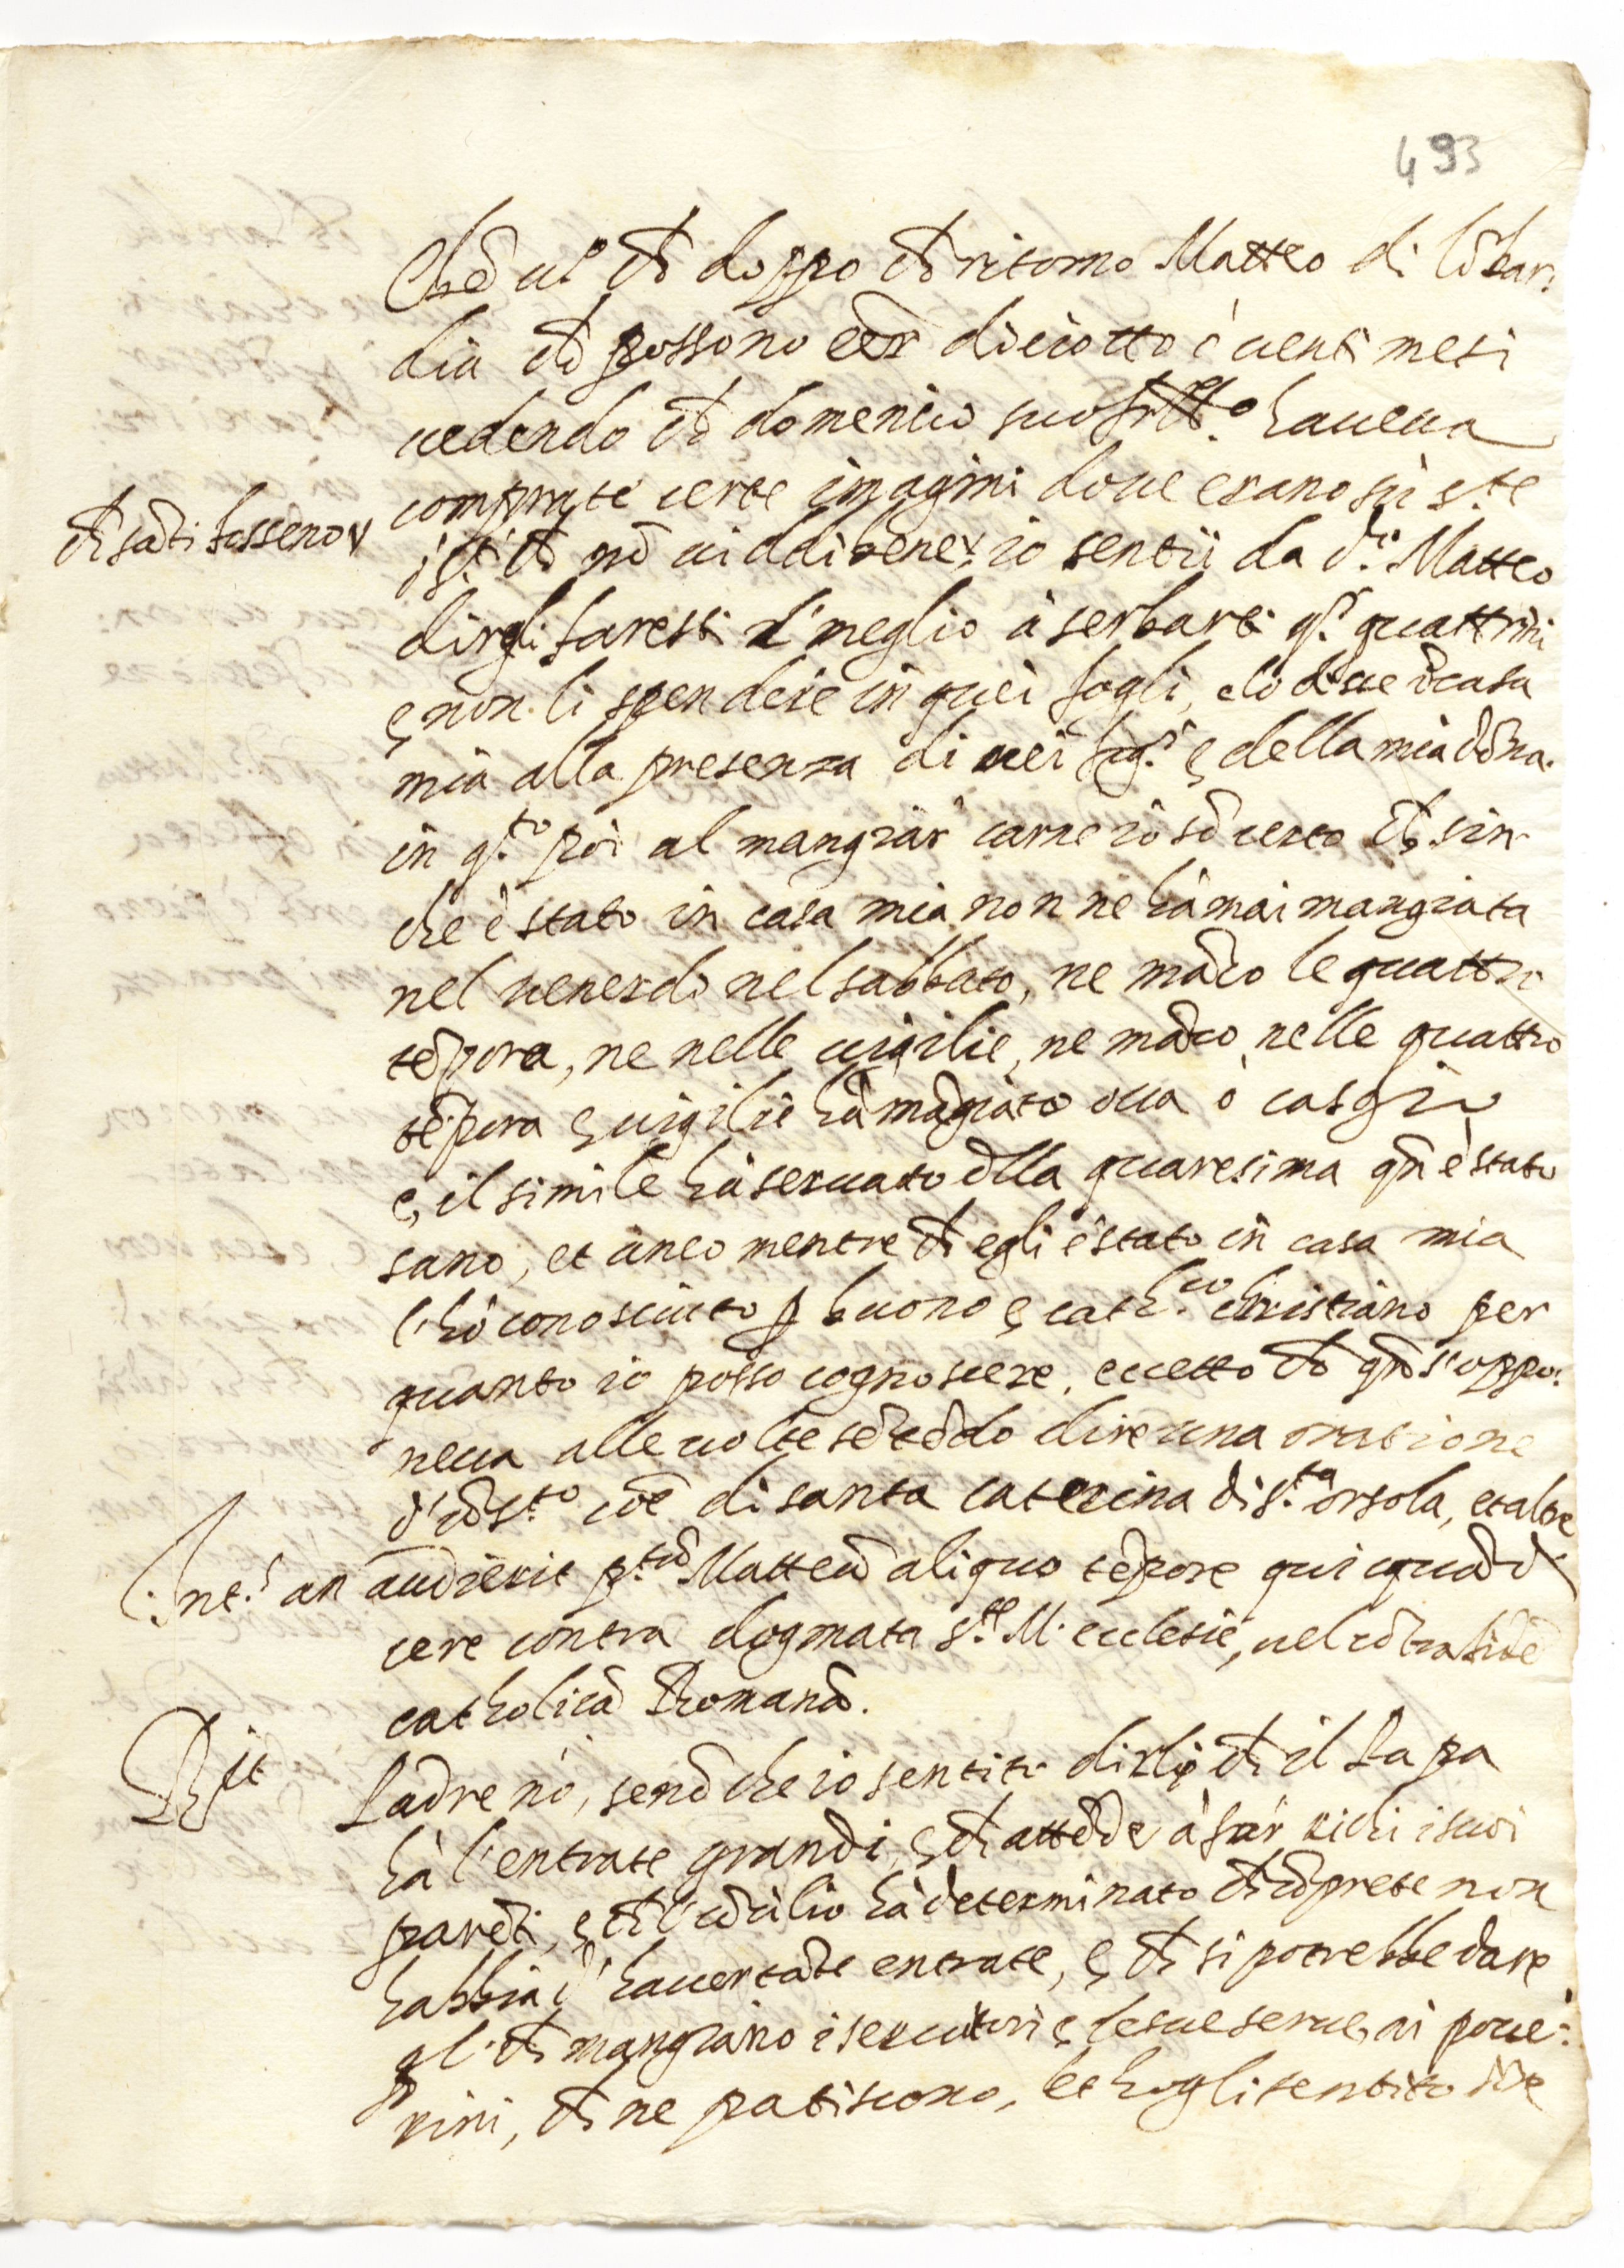 493
Chẽ ui ch̃ doppo ch̃ ritorno Matteo di Lõbar
dia ch̃ possono eẽr diciotto ò uenti mesi
uedendo ch̃ domenico suo frẽllo haueua
comprate certe imagini doue erano sù s.te
ch̃ sãti fossero v
ò s.ti ch̃ nõ uiddi bene v io sentii da d.o Matteo
dirgli faresti 'l meglio à serbarti q.i quattrini
e non li spendere in quei fogli, e lo disse ĩ casa
mia alla presenza di miei fig.i e della mia dõna.
in q.to poi al mangiar' carne io sò certo ch̃ sin
che è stato in casa mia non ne hà mai mangiata
nel uenerdi nel sabbato, ne mãco le quattro
tẽpora, ne nelle uigilie, ne mãco nelle quattro
tẽpora e uigilie hà mãgiato oua ò casgio
e, il simile hà seruato ñlla quaresima qñ è stato
sano, et anco mentre ch̃ egli è stato in casa mia
l'hò conosciuto p buono e cath.co christiano per
quanto io posso cognoscere, eccetto ch̃ qñ s'oppo:
neua alle uolte sẽtẽdo dire una oratione
d'ũ s.to cõe di santa caterina di s.ta orsola, et altre
Int.s an audierit p.tũ Matteũ aliquo tẽpore quicquã di
cere contra dogmata s.te M. ecclesie, uel cõtra fidẽ
catholicã Romanã.
R.it Padre nò, senõ che io sentito dirli ch̃ il Papa
hà l'entrate grandi, e ch̃ attẽde à far' richi i suoi
parẽti, e ch̃ 'l cõcilio hà determinato ch̃ ũ prete non
habbia d' hauer tãte entrate, e ch̃ si potrebbe dare
ql' ch̃ mangiano i seruitori e le sue serue, ai poue:
rini, ch̃ ne patiscono, et hogli sentito dire